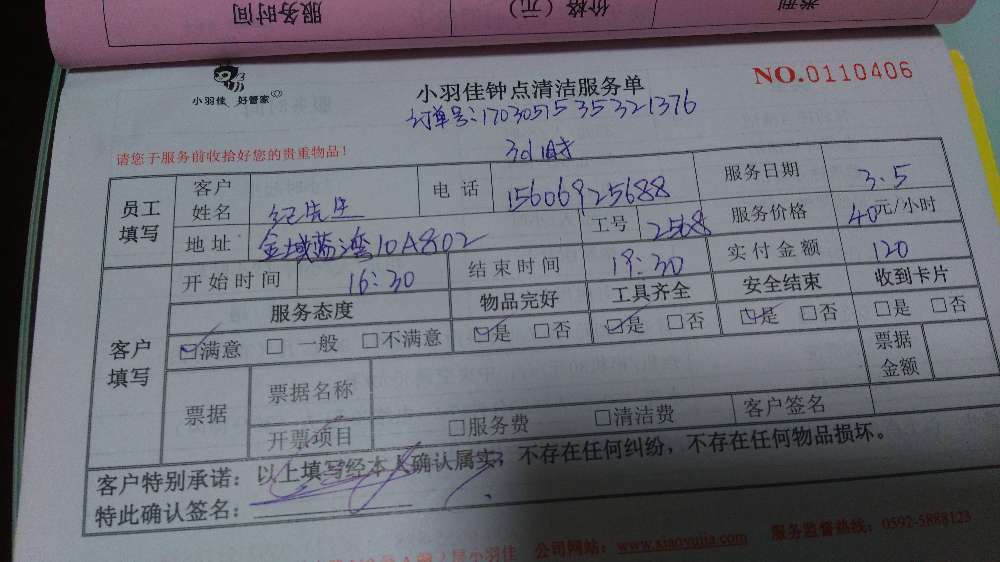 服务时间
价格（元）
类别
小羽佳 好管家
小羽佳钟点清洁服务单
NO.0110406
订单号:1703051535321376
请您于服务前收拾好您的贵重物品！
3小时
员工填写
客户姓名 纪先生 电话 15606925688 服务日期 3.5
地址 金域蓝湾10A802 工号 2568 服务价格 40元/小时
开始时间 16:30 结束时间 19:30 实付金额 120
客户填写
服务态度 物品完好 工具齐全 安全结束 收到卡片
☑满意 □一般 □不满意 ☑是 □否 ☑是 □否 ☑是 □否 □是 □否
票据 票据名称 票据金额
开票项目 □服务费 □清洁费 客户签名
客户特别承诺：以上填写经本人确认属实，不存在任何纠纷，不存在任何物品损坏。
特此确认签名：
小羽佳 公司网站：www.xiaoyujia.com 服务监督热线：0592-5888123